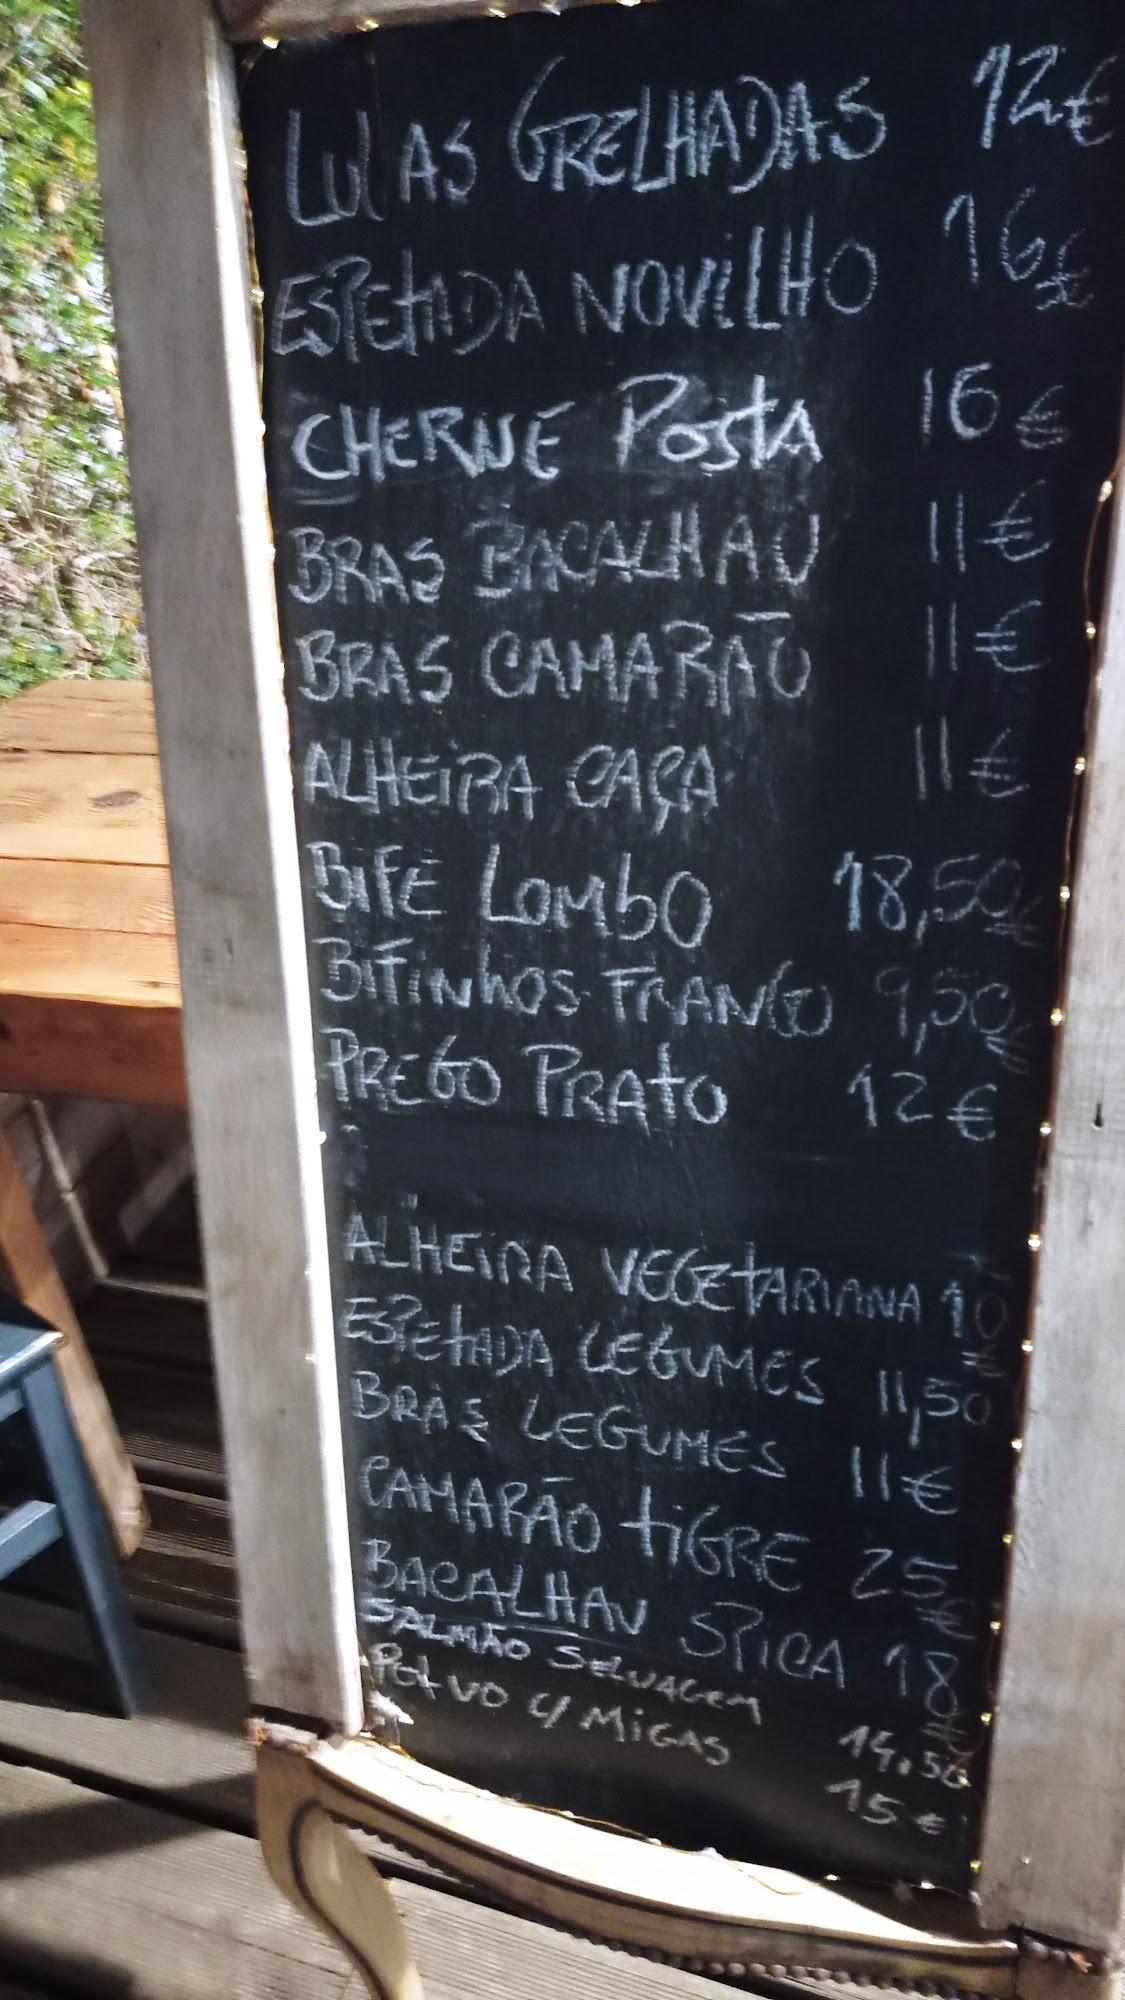 LULAS GRELHADAS 12€
ESPETADA NOVILHO 16€
CHERNE POSTA 16€
BRAS BACALHAU 11€
BRAS CAMARÃO 11€
ALHEIRA CAÇA 11€
BIFE LOMBO 18,50€
BIFINHOS FRANGO 9,50€
PREGO PRATO 12€
ALHEIRA VEGETARIANA 10€
ESPETADA LEGUMES 11,50
BRÁS LEGUMES 11€
CAMARÃO TIGRE 25€
BACALHAU SPICA 18€
SALMÃO SELVAGEM 14.50
POLVO C/ MIGAS 15€